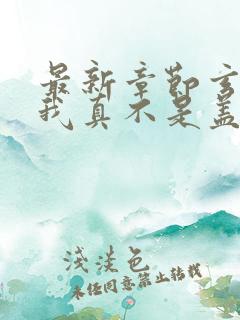 最新章节玄
我真不是盖
浅淡色
未经同意禁止转载